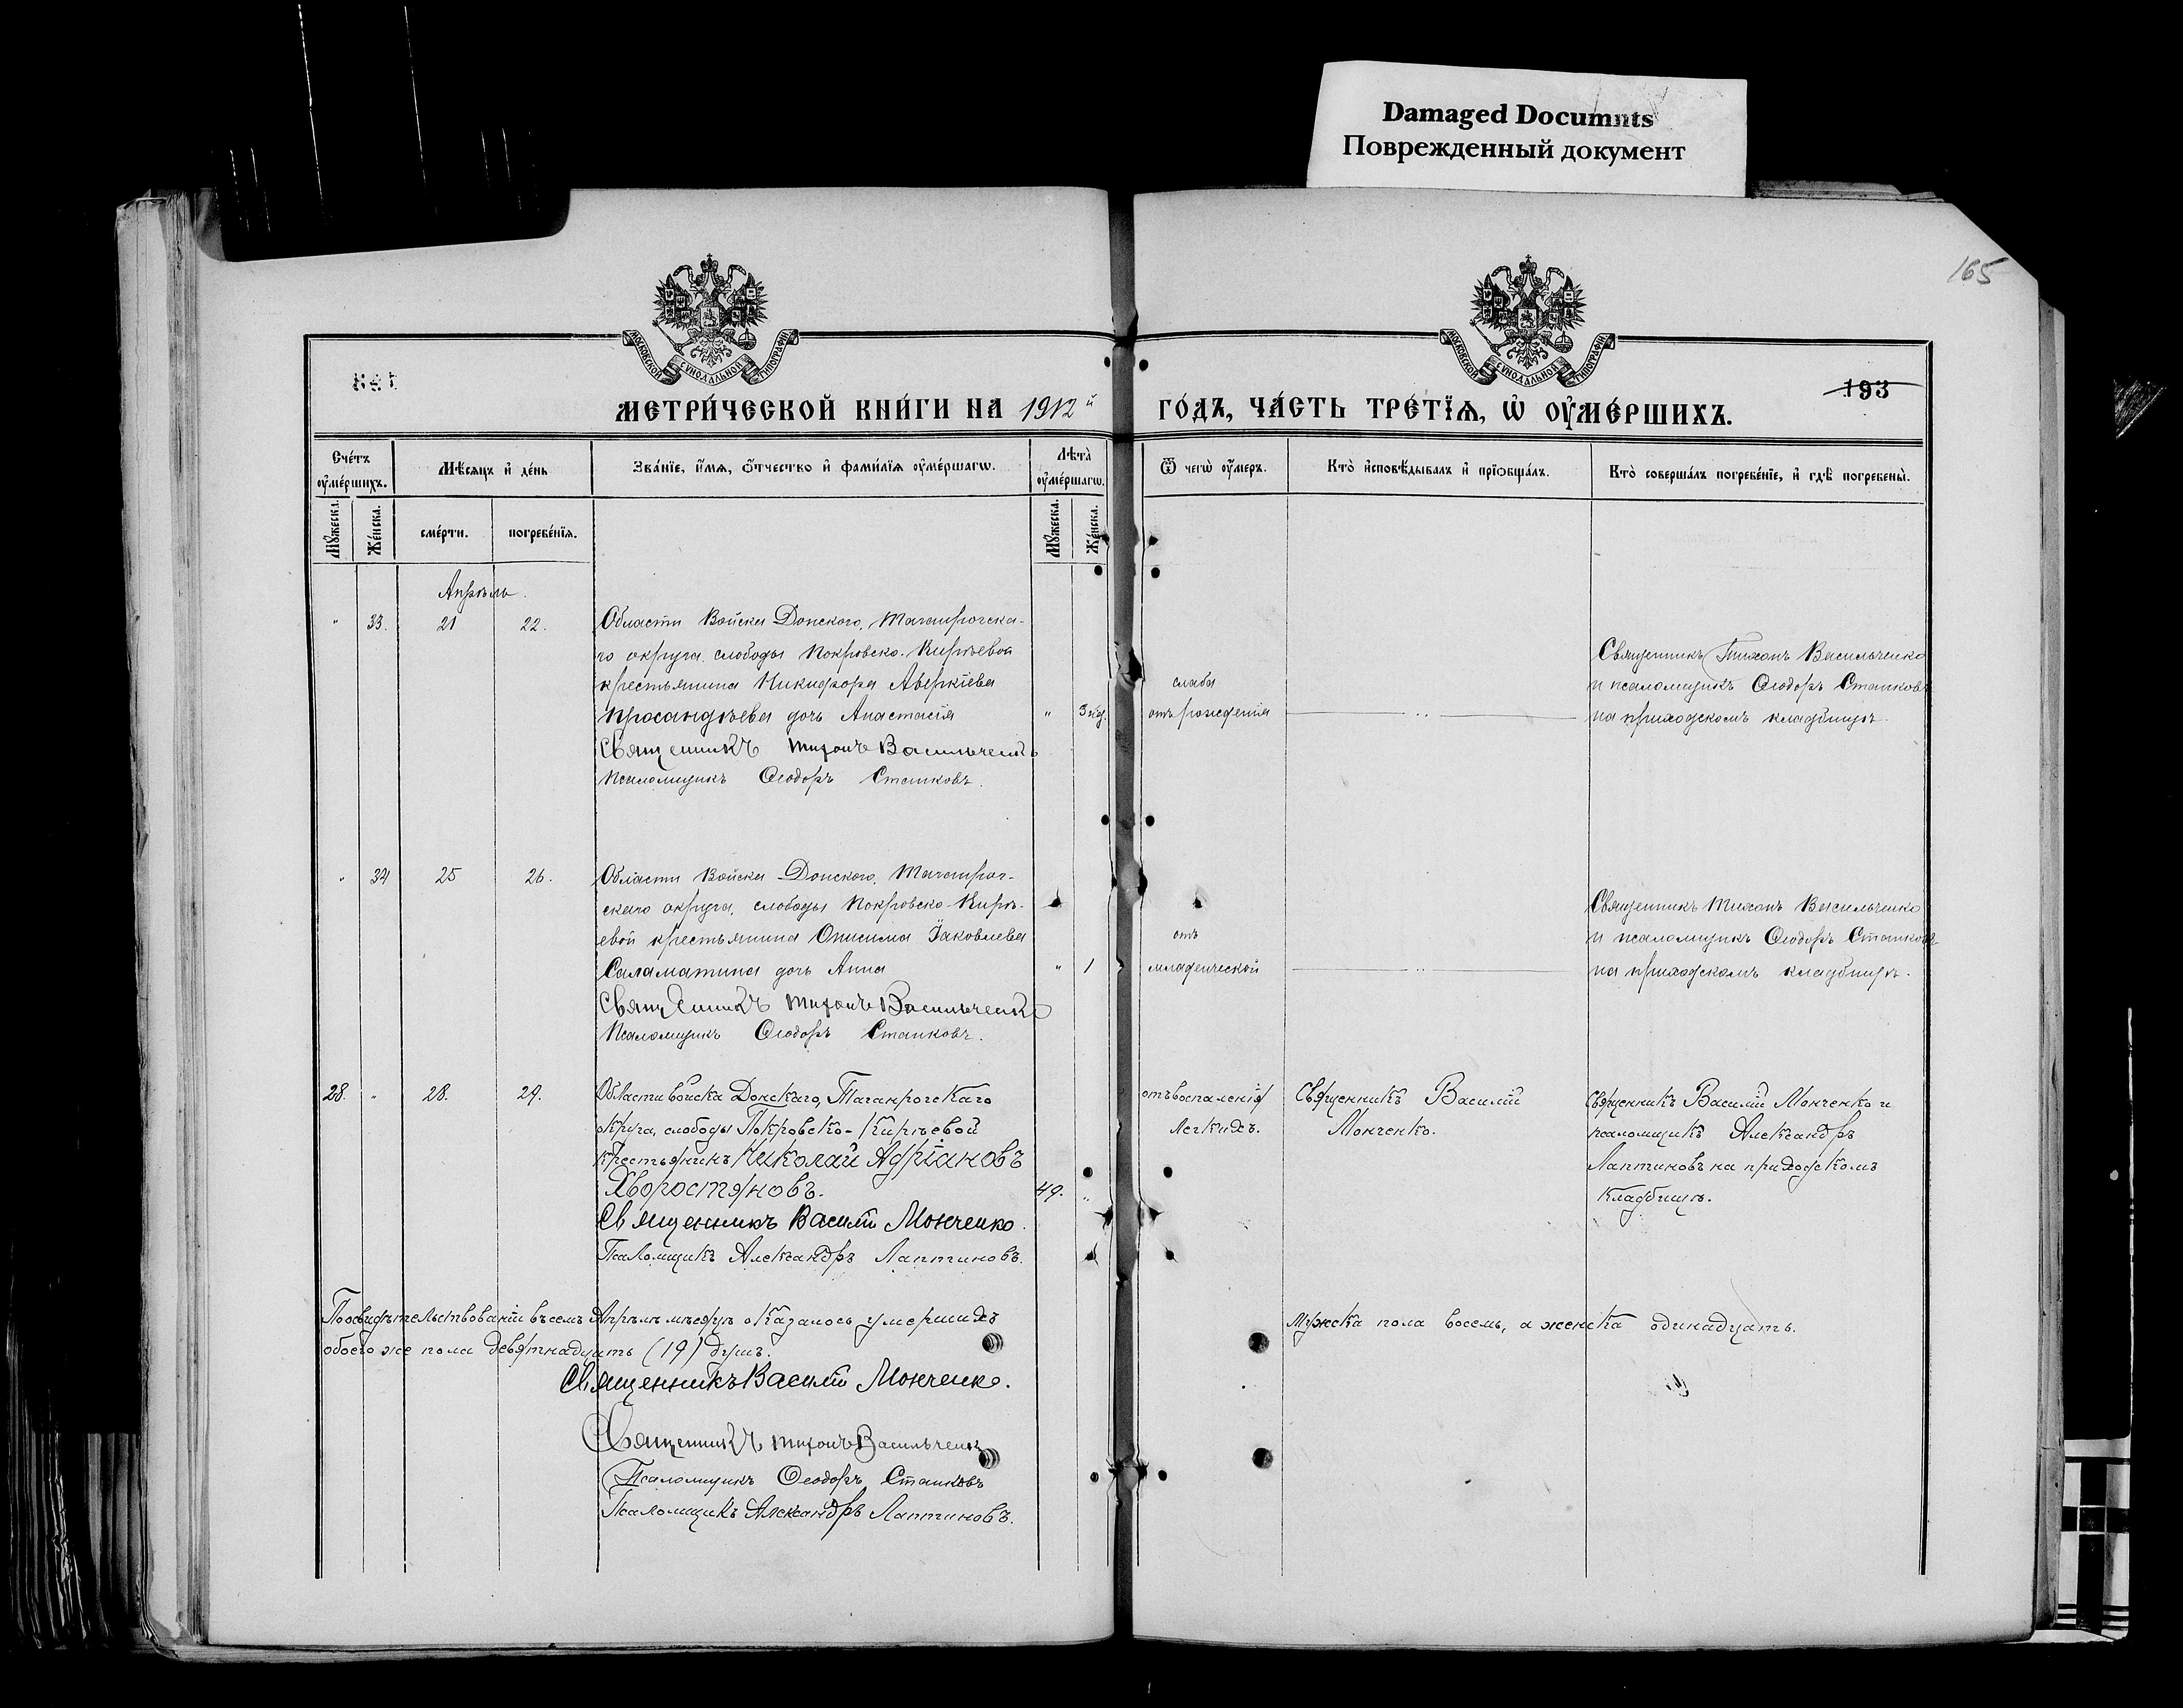 Damaged Documnts
Поврежденный документ
165
193
МОСКОВСКОЙ СУНОДАЛЬНОЙ ТИПОГРАФІИ
МОСКОВСКОЙ СУНОДАЛЬНОЙ ТИПОГРАФІИ
МЕТРИ́ЧЕСКОЙ КНИ́ГИ НА 1912й ГО́ДЪ, ЧА́СТЬ ТРЕ́ТЇѦ, Ѡ҆ ОУ҆МЕ́РШИХЪ.
Счéтъ оу҆мéршихъ.
Мѣ́сѧцъ и҆ дéнь
Звáнїе, и҆́мѧ, ѻ҆́тчество и҆ фамѝлїѧ оу҆мéршагѡ.
Лѣ́та оу҆мéршагѡ.
Ѿ чегѡ̀ оу҆́меръ.
Ктò и҆сповѣ́дывалъ и҆ прїѻбщáлъ.
Ктò совершáлъ погребéнїе, и҆ гдѣ̀ погребены̀.
Мꙋ́жеска.
Жéнска.
смéрти.
погребéнїѧ.
Мꙋ́жеска.
Жéнска.
Апрѣль.
" 33. 21 22. Области Войска Донского, Таганрогска-
го округа слободы Покровско-Кирѣевой
крестьянина Никифора Аверкіева
Просандѣева дочь Анастасія " 3 нед.
Священникъ Тихонъ Васильченко
Псаломщикъ Ѳеодоръ Станковъ.
слаба
отъ рожденія
Священникъ Тихонъ Васильченко
и псаломщикъ Ѳеодоръ Станковъ
на приходскомъ кладбищѣ.
" 34 25 26. Области Войска Донского, Таганрог-
скаго округа, слободы Покровско-Кирѣ-
евой крестьянина Онисима Іаковлева
Саламатина дочь Анна " 1
Священникъ Тихонъ Васильченко
Псаломщикъ Ѳеодоръ Станковъ.
отъ
младенческой
Священникъ Тихонъ Васильченко
и псаломщикъ Ѳеодоръ Станковъ
на приходскомъ кладбищѣ.
28. " 28. 29. Области войска Донскаго, Таганрогскаго
округа, слободы Покровско-Кирѣевой
крестьянинъ Николай Адріановъ
Хворостяновъ. 49. "
Священникъ Василій Мончепко.
Псаломщикъ Александръ Лаптиновъ.
отъ воспаленія
легкихъ.
Священникъ Василій
Монченко.
Священникъ Василій Монченко и
псаломщикъ Александръ
Лаптиновъ на приходскомъ
кладбищѣ.
По освидѣтельствованіи въ семъ Апрѣлѣ мѣсяцѣ оказалось умершихъ мужска пола восемь, а женска одинадцать.
обоего же пола девятнадцать (19) душъ.
Священникъ Василій Монченко.
Священникъ Тихонъ Васильченко
Псаломщикъ Ѳеодоръ Станковъ
Псаломщикъ Александръ Лаптиновъ.